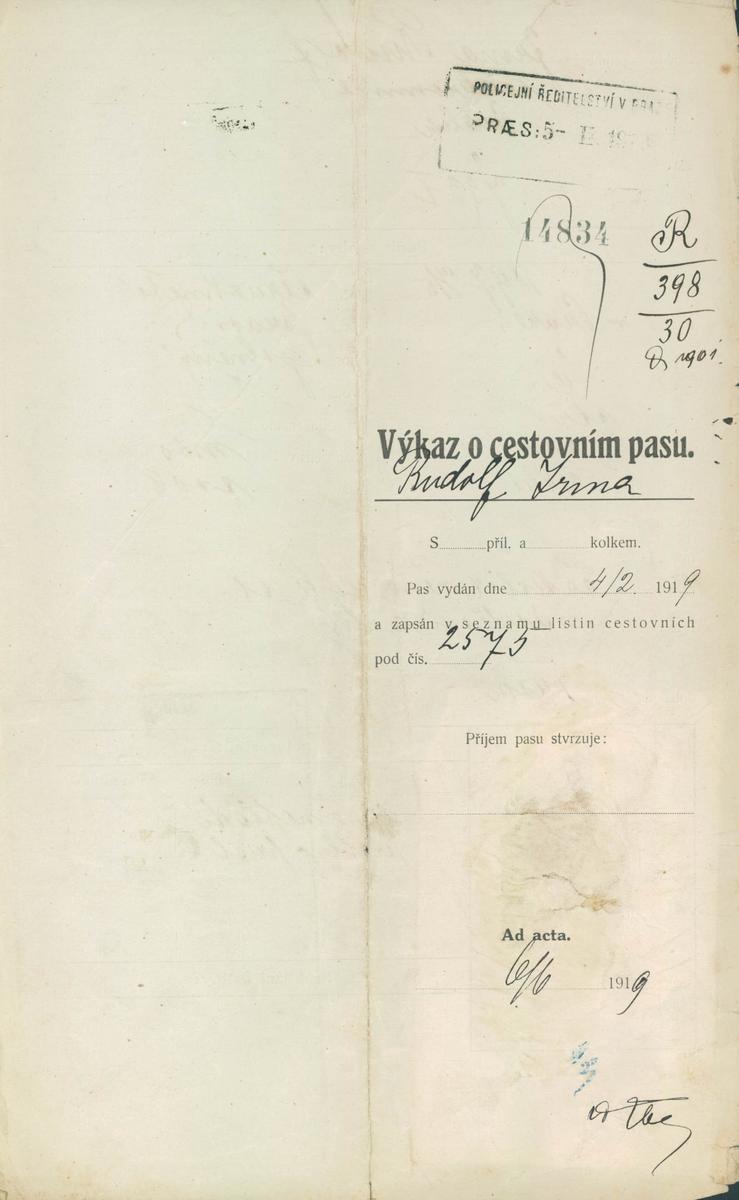 POLICEJNÍ ŘEDITELSTVÍ V
PRÆS: 5- II
14834
R
398
30
1901
Výkaz o cestovním pasu.
Rudolf Irma
S příl. a kolkem.
Pas vydán dne 4/2. 1919
a zapsán v seznamu listin cestovních
pod čís. 2575
Příjem pasu stvrzuje:
Ad acta.
6/6 1919